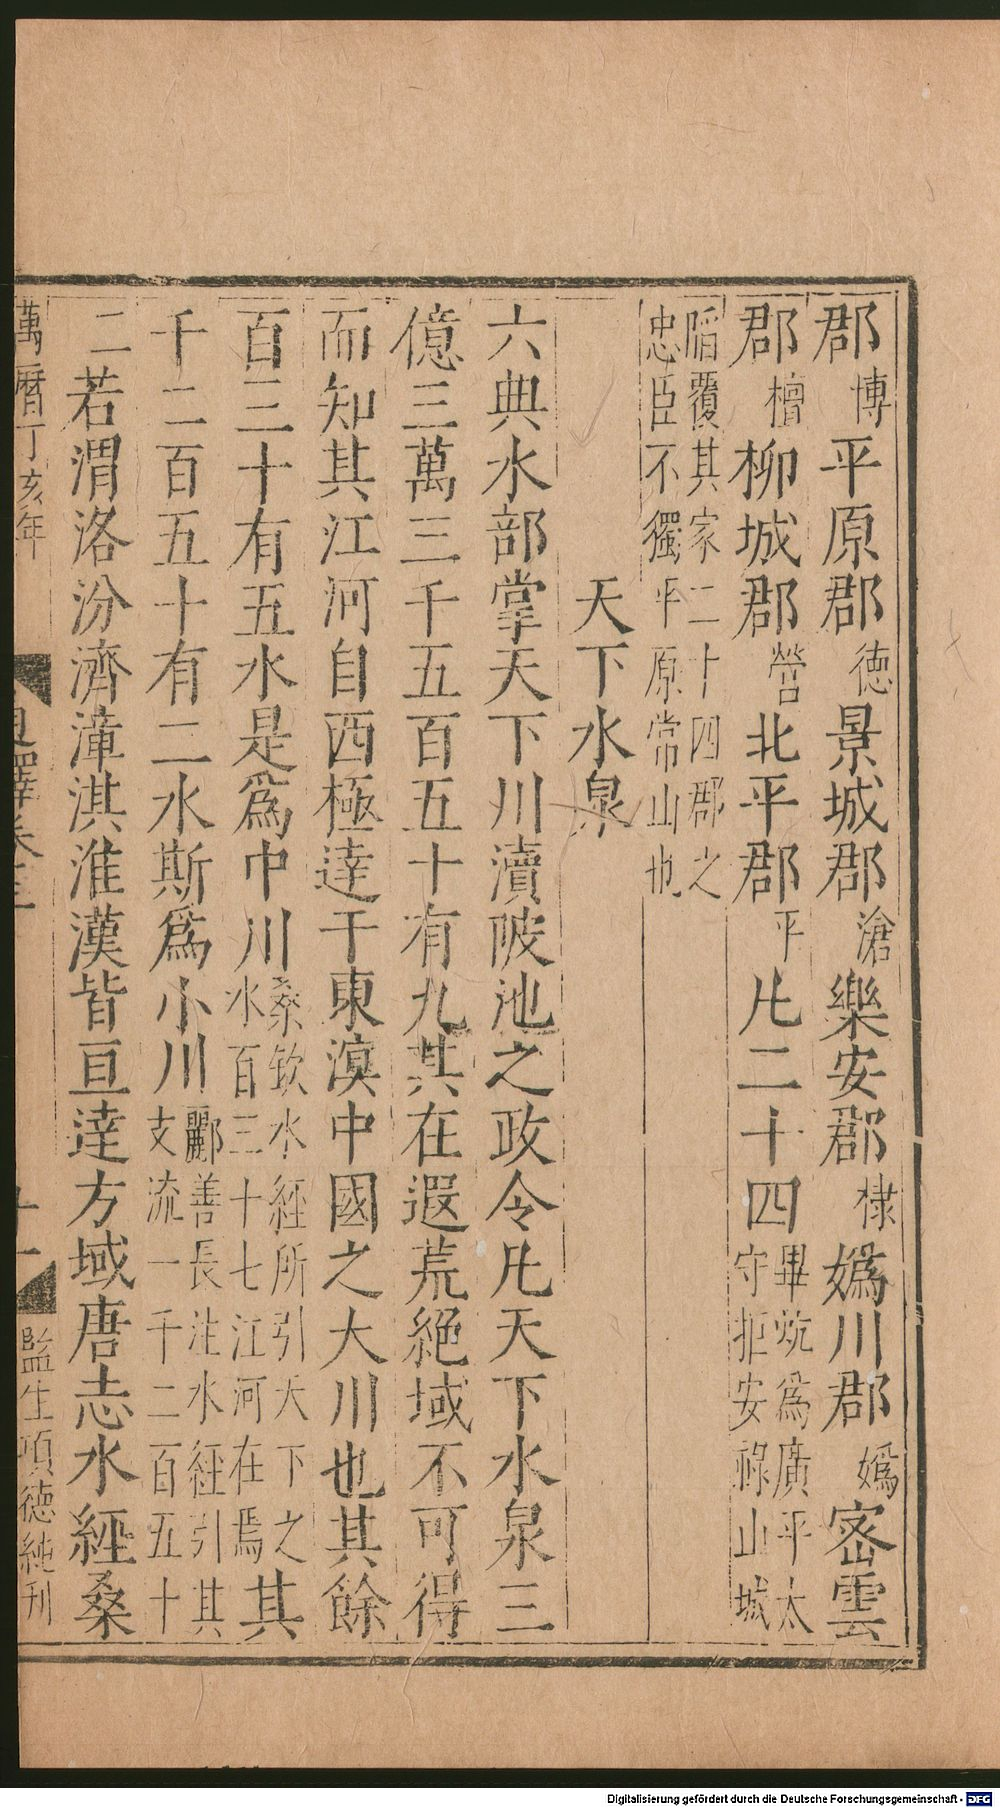 郡博平原郡德景城郡滄樂安郡棣嬀川郡嬀密雲
郡檀柳城郡營北平郡平凡二十四畢炕爲廣平太守拒安祿山城
陷覆其家二十四郡之忠臣不獨平原常山也
天下水泉
六典水部掌天下川瀆陂池之政令凡天下水泉三
億三萬三千五百五十有九其在遐荒絕域不可得
而知其江河自西極達于東溟中國之大川也其餘
百三十有五水是爲中川桑欽水經所引天下之水百三十七江河在焉其
千二百五十有二水斯爲小川酈善長注水經引其支流一千二百五十
二若渭洛汾濟漳淇淮漢皆亘達方域唐志水經桑
萬曆丁亥年
十一
監生項德純刊
Digitalisierung gefördert durch die Deutsche Forschungsgemeinschaft - DFG